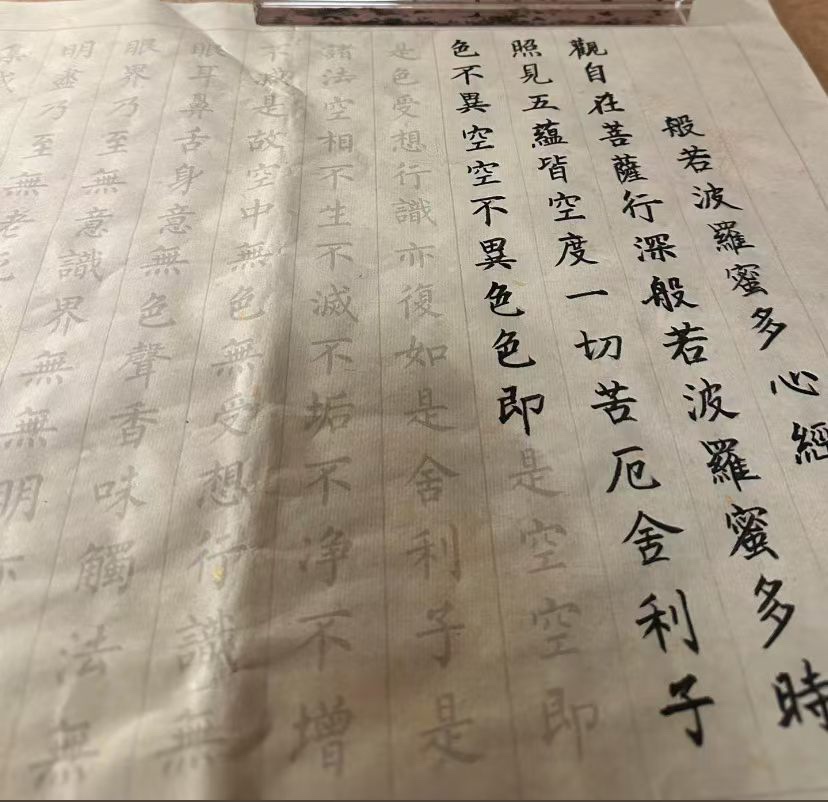 般若波羅蜜多心經
觀自在菩薩行深般若波羅蜜多時
照見五蘊皆空度一切苦厄舍利子
色不異空空不異色色即是空空即
是色受想行識亦復如是舍利子是
諸法空相不生不滅不垢不净不增
不減是故空中無色無受想行識無
眼耳鼻舌身意無色聲香味觸法無
眼界乃至無意識界無無明
明盡乃至無老